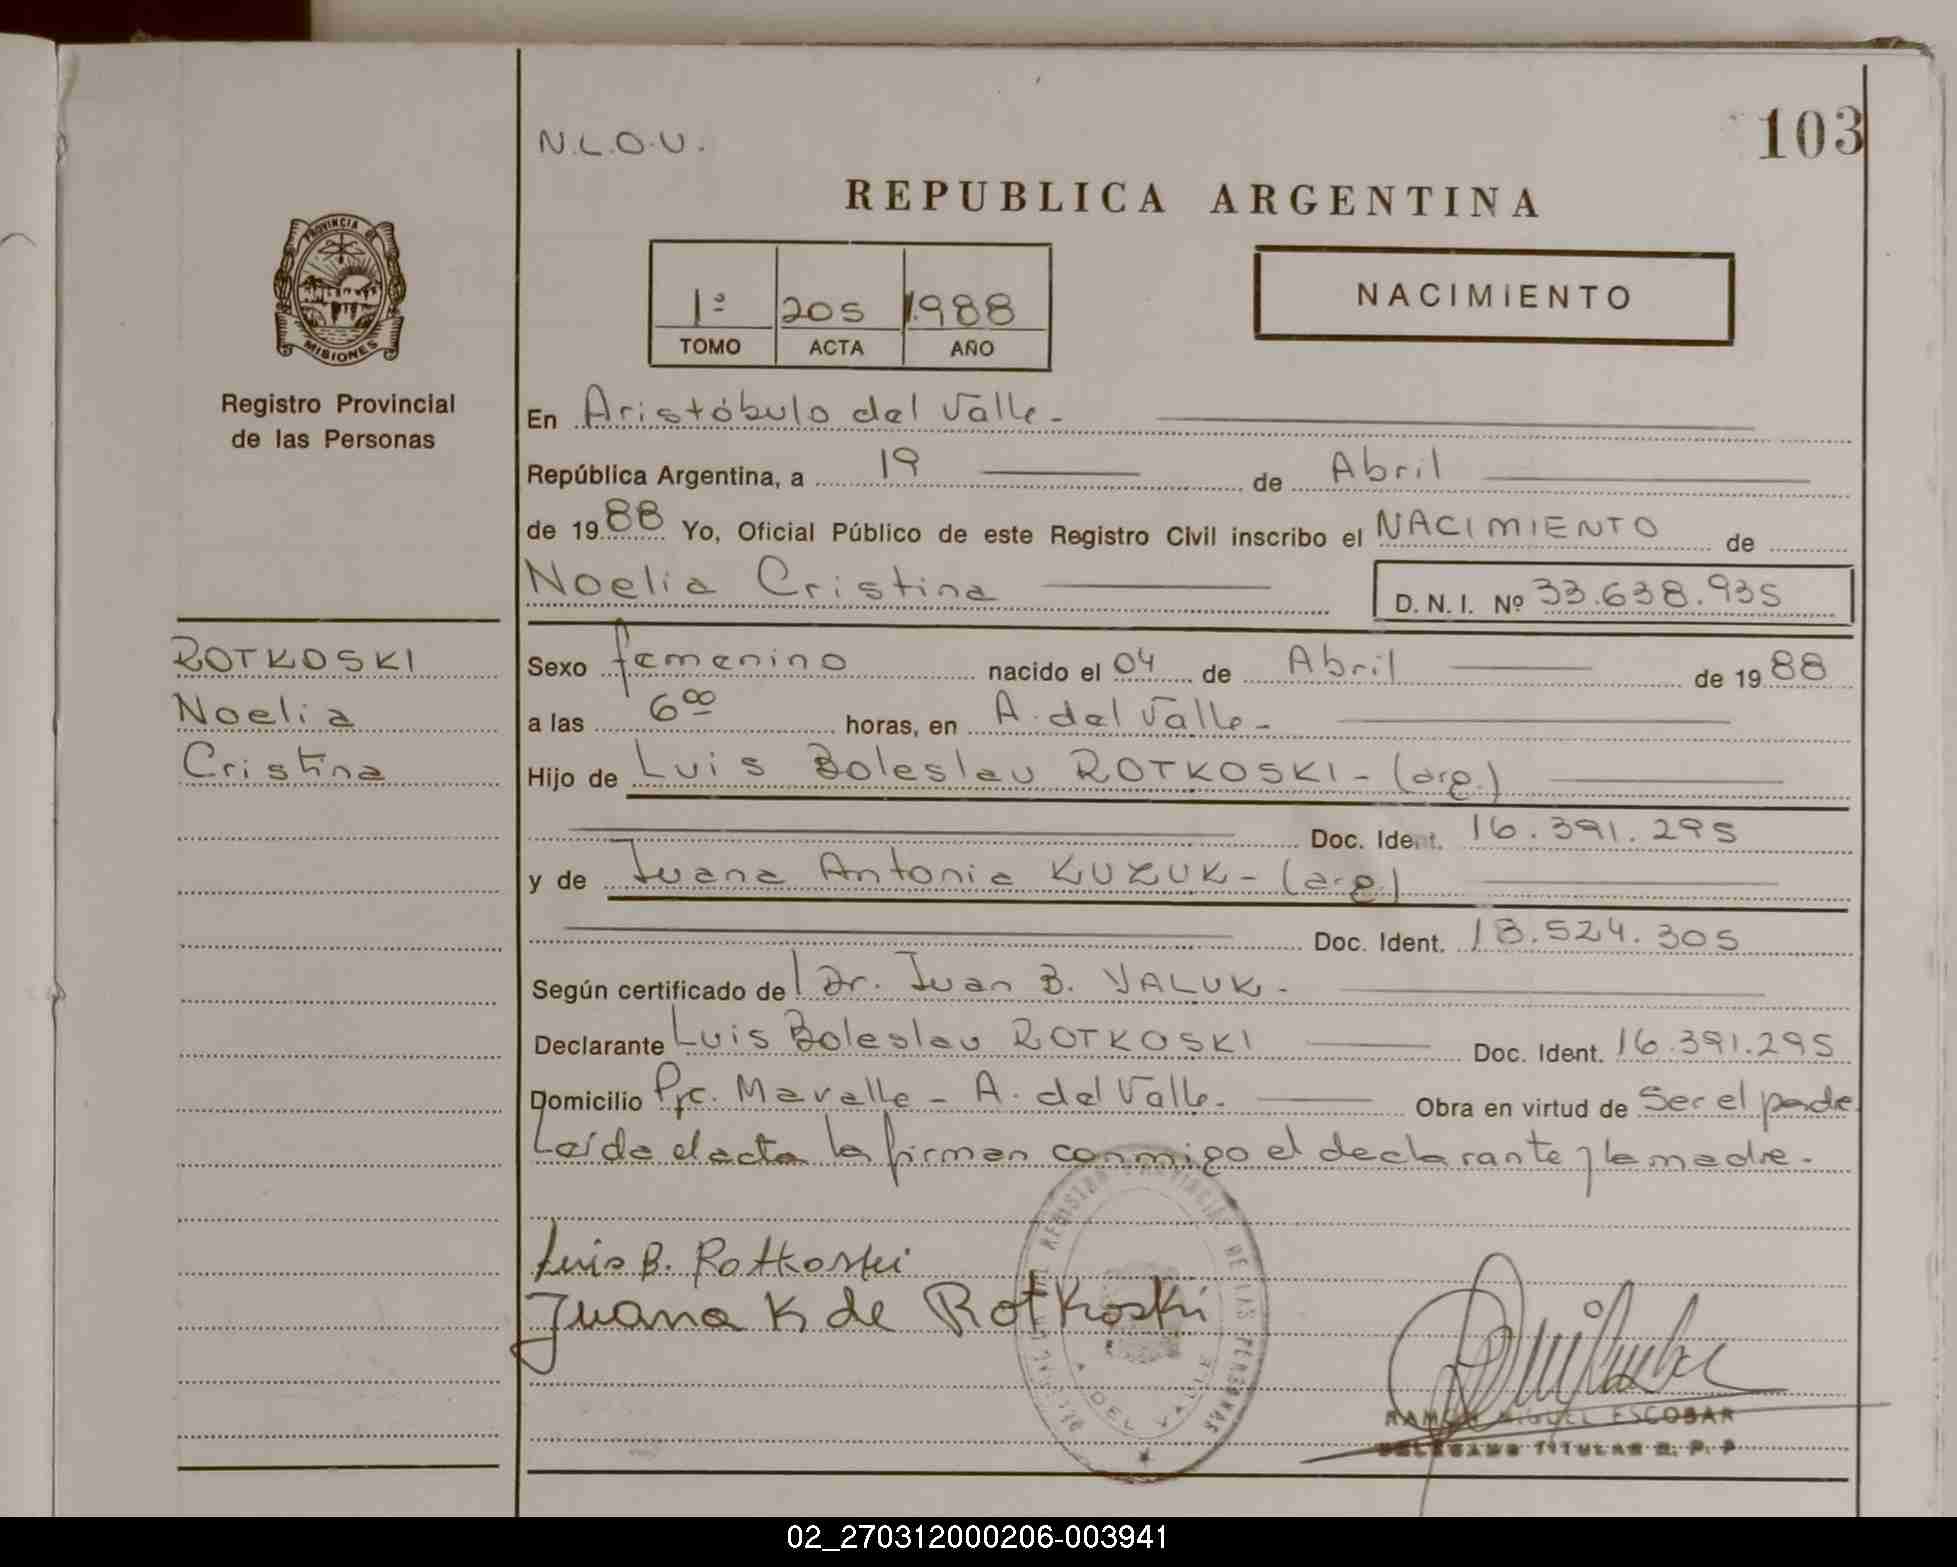 N.L.O.U.
103
REPUBLICA ARGENTINA
PROVINCIA DE
MISIONES
Registro Provincial
de las Personas
1º 205 1.988
TOMO ACTA AÑO
NACIMIENTO
En Aristóbulo del Valle.-
República Argentina, a 19 de Abril
de 1988 Yo, Oficial Público de este Registro Civil inscribo el NACIMIENTO de
Noelia Cristina D. N. I. Nº 33.638.935
ROTKOSKI
Noelia
Cristina
Sexo femenino nacido el 04 de Abril de 1988
a las 6 00 horas, en A. del Valle.-
Hijo de Luis Boleslau ROTKOSKI - (arg.)
Doc. Ident. 16.391.295
y de Juana Antonia KUZUK - (arg.)
Doc. Ident. 18.524.305
Según certificado del Dr. Juan B. YALUK.-
Declarante Luis Boleslau ROTKOSKI Doc. Ident. 16.391.295
Domicilio Pje. Mavalle - A. del Valle. Obra en virtud de Ser el padre
Leída el acta la firman conmigo el declarante y la madre.-
Luis B. Rotkoski
Juana K de Rotkoski
REGISTRO PROVINCIAL DE LAS PERSONAS
A. DEL VALLE
RAMON MIGUEL ESCOBAR
DELEGADO TITULAR R. P. P
02_270312000206-003941